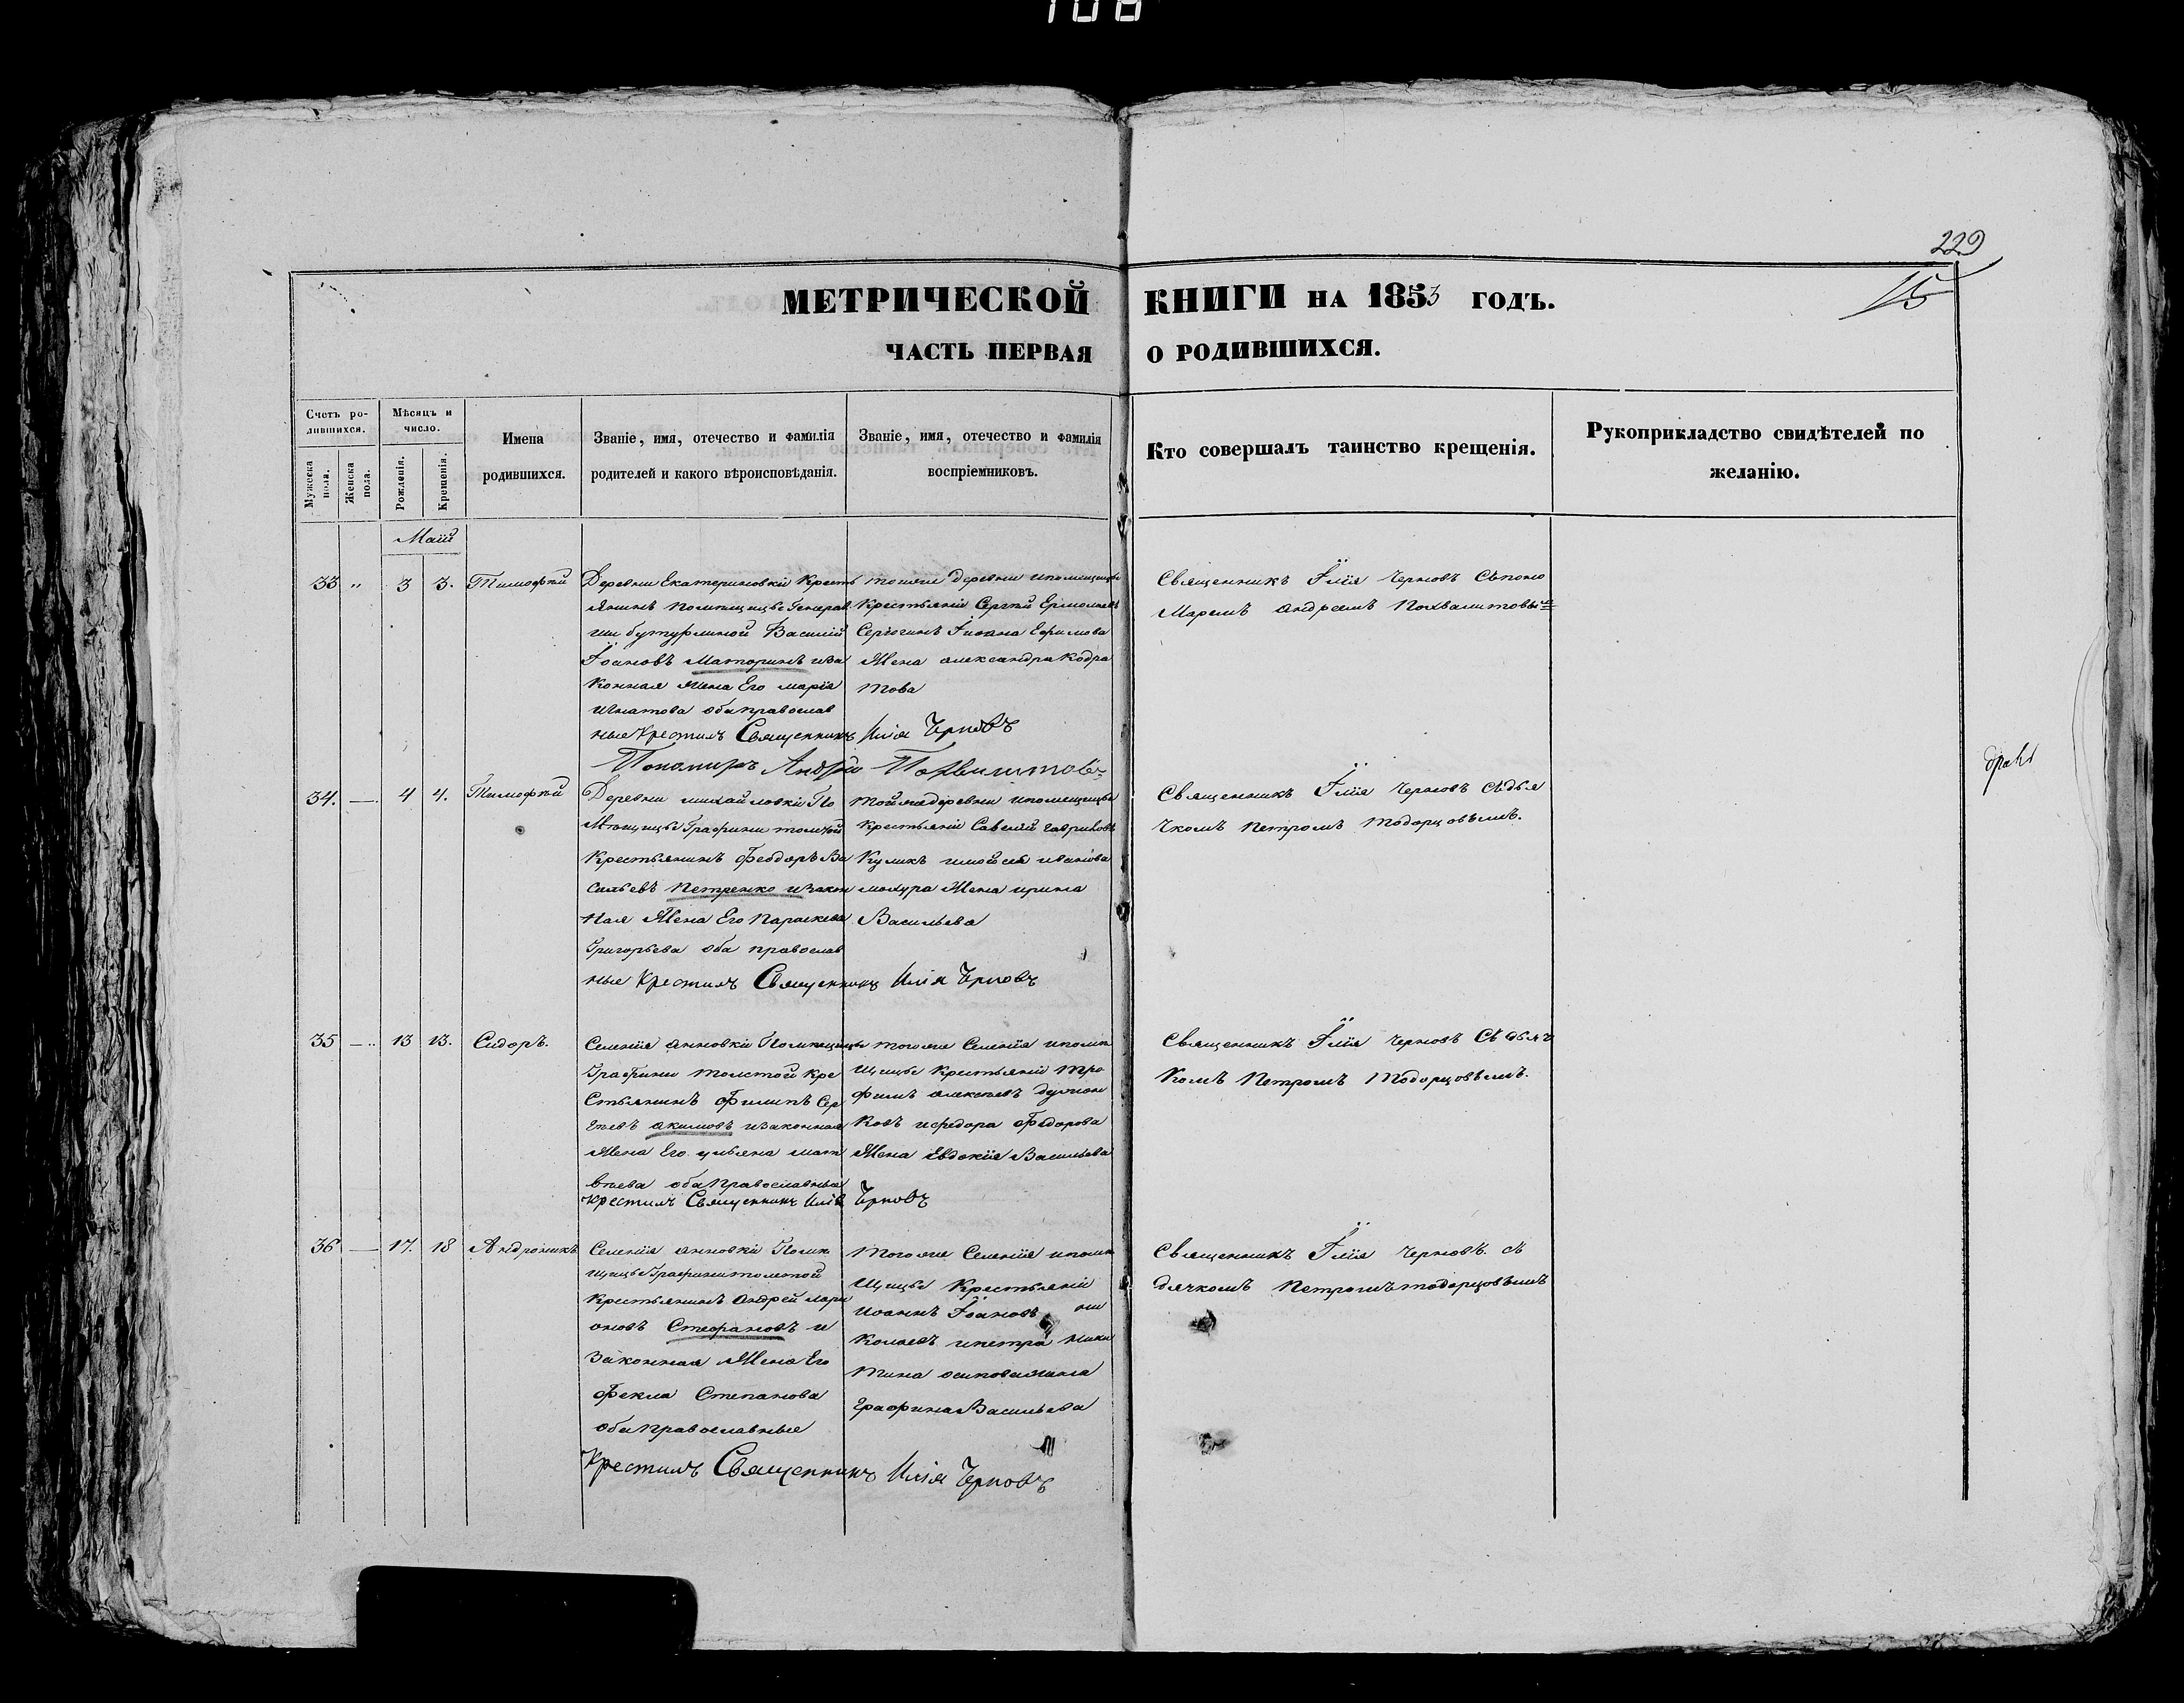 108
229
15
МЕТРИЧЕСКОЙ КНИГИ НА 1853 ГОДЪ.
ЧАСТЬ ПЕРВАЯ О РОДИВШИХСЯ.
Счетъ ро-
дившихся.
Мужеска
пола.
Женска
пола.
Мѣсяцъ и
число.
Рожденія.
Крещенія.
Имена
родившихся.
Званіе, имя, отечество и фамилія
родителей и какого вѣроисповѣданія.
Званіе, имя, отечество и фамилія
воспріемниковъ.
Кто совершалъ таинство крещенія.
Рукоприкладство свидѣтелей по
желанію.
Маій
33 „ 3 3. Тимофѣй
Деревни Екатериновки Крестъ
янинъ помѣщицы Генерал
ши бутурлиной Василій
Іоановъ Маторинъ иза
конная жена Его марія
Игнатова оба православ
ные Крестилъ Священникъ Илія Чрновъ
Пономарь Андрей
тояже деревни ипомещицы
Крестьяніи Сергѣй Ермолаевъ
Серіогинъ Іиоана Ефимова
Жена александра Кодра
това
Священникъ Іліа Черновъ Сьпоно
Маремъ андреемъ
34. — 4 4. Тимофѣй
Деревни михайловки По
Мѣщицы Графини толстой
Крестьянинъ Феодоръ Ва
сильевъ Петренко изакон
ная Жена Его Параскева
Григорьева оба православ
ные Крестилъ Священникъ Илія Чрновъ
тойжедеревни ипомещицы
крестьяніи Савелій гавриловъ
Куликъ имойсея иванова
мохура Жена ирина
Васильева
Священникъ Іліа Черновъ Сьдья
чкомъ Петромъ тодорцовымъ.
35 — 13 13. Сидоръ.
Селенія анновки Помѣщицы
Графини толстой Кре
Стьянинъ Филипъ Сер
гѣевъ акимовъ изаконная
Жена Его ульяна мат
вѣева оба Православные
крестилъ Священникъ Илія Чрновъ
тогоже Селенія ипомѣ
щицы Крестьяніи тро
фимъ алексѣевъ
ковъ исфедора Федорова
Жена Евдокія Васильева
Священникъ Іліа Черновъ Сь дьяч
комъ Петромъ тодорцовымъ.
36 — 17. 18 Андроникъ
Селенія анновки Помѣ
щицы Графини толстой
Крестьянинъ андрей лари
оновъ Стефановъ и
Законная Жена Его
Фекла Степанова
оба православные
Крестилъ Священникъ Илія Чрновъ
тогоже Селенія ипомѣ
щицы Крестьяніи
Иоаннъ Іоановъ ни
колаевъ ипетра ники
тина осипова жена
Васильева
Священникъ Іліа Черновъ. съ
дячкомъ Петромъ тодорцовымъ